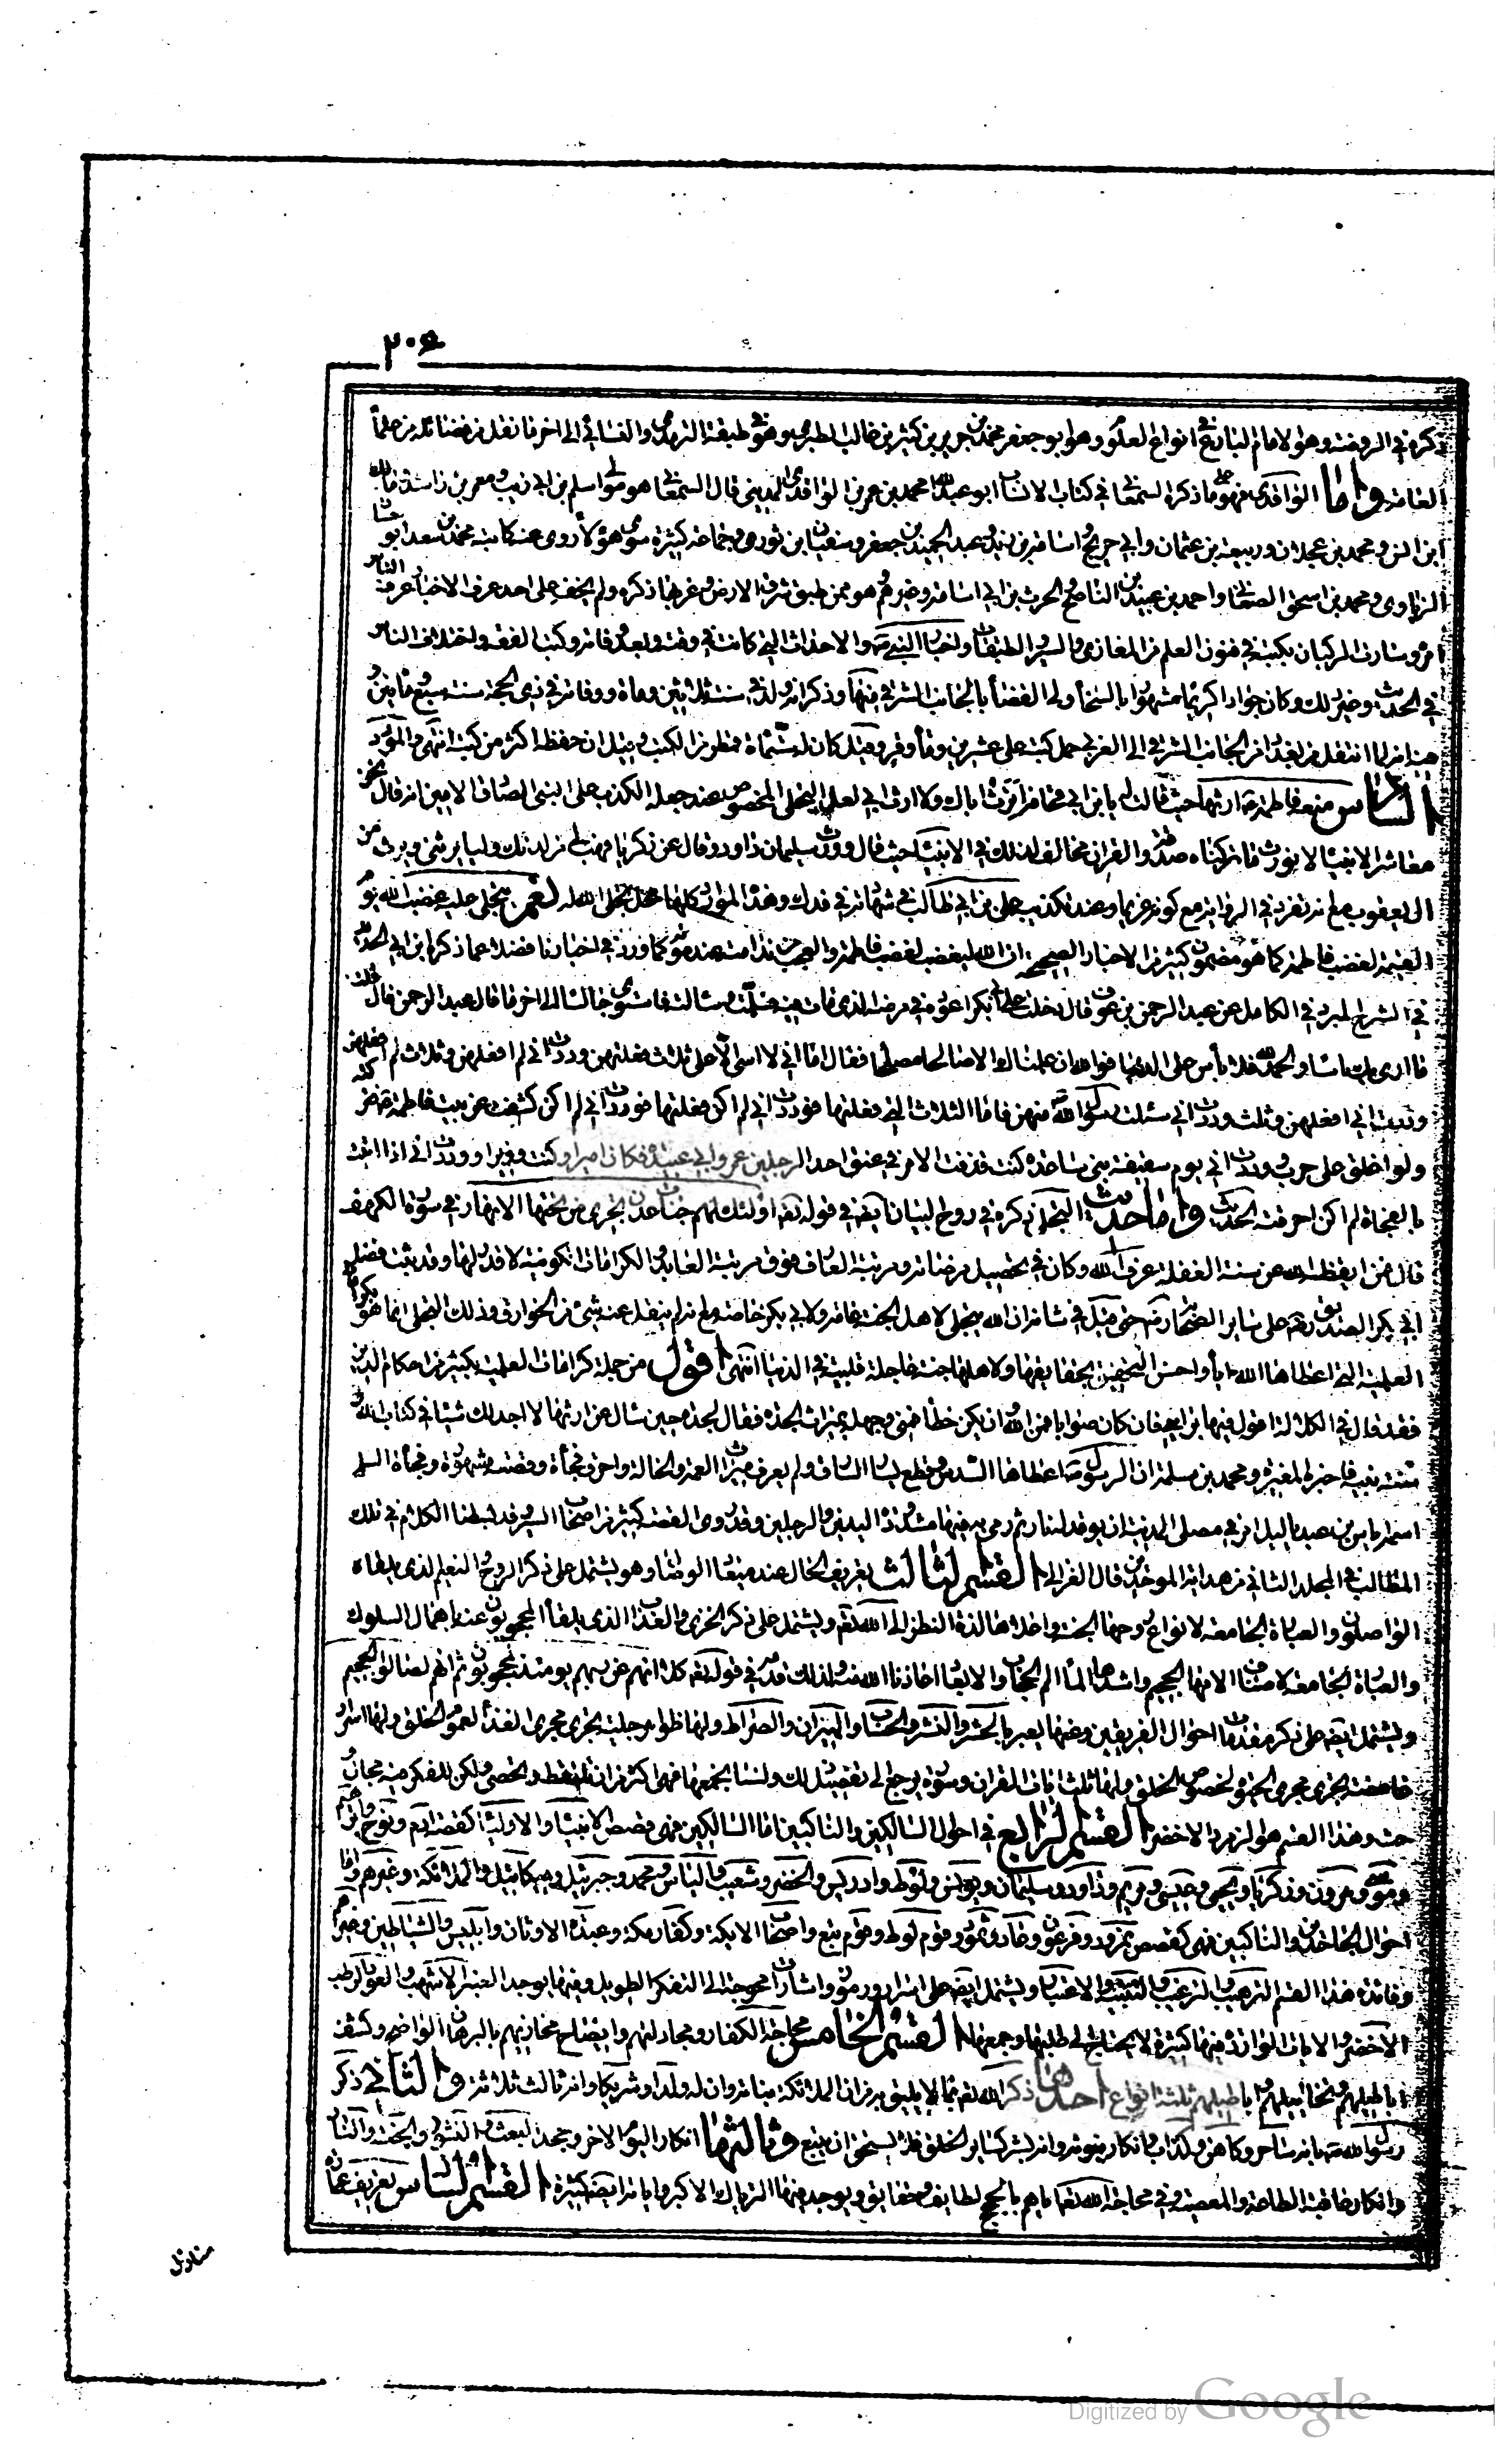 ٢٠٤
ذكره في الروضة وهؤلاء امام التاريخ في انواع العلوم وهو ابو جعفر محمد بن جرير بن كثير بن غالب الطبري وهو في طبقة الترمذي والنسائي الى اخر ما نقل من فضائله من علماء
العامة واما الواقدي فهو على ما ذكره السمعاني في كتاب الانساب ابو عبد الله محمد بن عمر بن الواقدي المديني قال السمعاني هو مولى اسلم بن ابي ذيب ومعمر بن راشد ومالك
ابن انس ومحمد بن عجلان وربيعة بن عثمان وابي جريح واسامة بن زيد وعبد الحميد بن جعفر وسفيان بن ثوري وجماعة كثيرة سوى هؤلاء روى عنه كاتبه محمد بن سعد ابو حسان
الزيادي ومحمد بن اسحق الصغاني واحمد بن عبيد بن الناصح والحرث بن ابي اسامة وغيرهم هو ممن طبق شرق الارض وغربها ذكره ولم يخف على احد عرف الاخبار عرفه الناس
امره وسارت الركبان بكتبه في فنون العلم من المغازي والسير والطبقات واخبار النبي ص والاحداث التي كانت في وقته وبعد وفاته وكتب الفقه واختلاف الناس
في الحديث وغير ذلك وكان جوادا كريما مشهورا بالسخاء ولي القضاء بالجانب الشرقي منها وذكر انه ولد في سنة ثلاثين ومأة ووفاته في ذي الحجة سنة سبع مأتين و
هذا انه لما انتقل من بغداد من الجانب الشرقي الى الغربي حمل كتبه على عشرين ومأة وقر وقيل كان له ستمأة قمطر من الكتب وقيل ان حفظه اكثر من كتبه انتهى والمورد
السادس منعه فاطمة ع ارثها حيث قالت له يا بن ابي قحافة اترث اباك ولا ارث ابي لعل التجلي المخصوص عند جعله الكذب على النبي الصادق الامين انه قال نحن
معاشر الانبياء لا نورث ما تركناه صدقة والقران مخالف لذلك في الانبياء حيث قال وورث سليمان داود وقال عن زكريا فهب لي من لدنك وليا يرثني ويرث من
ال يعقوب مع انه تفرد في الرواية مع كونه غريما وعند تكذيب علي بن ابي طالب في شهادته في فدك وهذه الموارد كلها محل تجلى الله له نعم يتجلى عليه غضب الله يوم
القيمة لغضب فاطمة كما هو مضمون كثير من الاخبار الصحيحة ان الله ليغضب لغضب فاطمة والعجب من ندامته عند موته كما ورد في اخبارنا فضلا عما ذكره ابن ابي الحديد
في الشرح والمبرد في الكامل عن عبد الرحمن بن عوف قال دخلت على ابي بكر اعوده في مرضه الذي مات فيه فسلمت وسالته فاستوى جالسا الى اخر ما قال عبد الرحمن قال فقلت
ما ارى بك باسا والحمد لله فلا تأس على الدنيا فوالله ان علمناك الا صالحا مصلحا فقال اما اني لا اسى الا على ثلاث فعلتهن وددت اني لم افعلهن وثلاث لم افعلهن
وددت اني افعلهن وثلث وددت اني سئلت رسول الله ص منهن فاما الثلاث التي فعلتها فوددت اني لم اكن فعلتها فوددت اني لم اكن كشفت عن بيت فاطمة
ولو اغلق على حرب ووددت اني يوم سقيفة بني ساعدة كنت قذفت الامر في عنق احد الرجلين عمر وابي عبيدة فكان اميرا وكنت وزيرا ووددت اني اذا اتيت
بالفجاة لم اكن احرقته الحديث واما حديث التجلي ذكره في روح البيان ايضا في قوله تعالى اولئك لهم جنات عدن تجري من تحتها الانهار في سورة الكهف
قال فمن ايقظه الله عن سنة الغفلة عرف الله وكان في تحصيل مرضاته ومرتبة العارف فوق مرتبة العابد والكرامات الكونية لا قدر لها وقد ثبت فضل
ابي بكر الصديق رض على ساير الصحابة رض حتى قيل في شانه ان الله يتجلى لاهل الجنة عامة ولابي بكر خاصة مع انه لم ينقل عنه شيء من الخوارق وذلك التجلي انما هو بكرامة
العلمية التي اعطاها الله اياه واحسن التخصيص بحقايقها ولاهلها جنة عاجلة قلبية في الدنيا انتهى اقول من جملة كراماته العلمية بكثير من احكام الدين
فقد قال في الكلالة اقول فيها برايي فان كان صوابا فمن الله وان يكن خطأ فمني وجهله بميراث الجدة فقال لجدة حين سال عن ارثها لا اجد لك شيئا في كتاب الله و
سنة نبيه فاخبره المغيرة ومحمد بن مسلمة ان الرسول ص اعطاها السدس وقطع يسار السارق ولم يعرف ميراث العمة والخالة واحرق فجأة وقصته مشهورة وفجأة السلمي
اسمه اياس بن عبد ياليل امر في مصلى المدينة ان يوقد له نار ثم رمى به فيها مشدود اليدين والرجلين وقد روى القصة كثير من اصحاب السير وقد بسطنا الكلام في ذلك
المطالب في المجلد الثاني من هداية الموحدين قال الغزالي القسم الثالث تعريف الحال عند ميعاد الوصال وهو يشتمل على ذكر الروح والنعيم الذي يلقاه
الواصلون والعبارة الجامعة لانواع روحها الجنة واعلاها لذة النظر الى الله تعالى ويشتمل على ذكر الخزي والعذاب الذي يلقاه المحجوبون عنه باهمال السلوك
والعبارة الجامعة لاصناف الامها الجحيم واشدها الما الم الحجاب والابعاد اعاذنا الله منه ولذلك قدمه في قوله تعالى كلا انهم عن ربهم يومئذ لمحجوبون ثم انهم لصالوا الجحيم
ويشتمل ايضا على ذكر مقدمات احوال الفريقين وعنها يعبر بالحشر والنشر والحساب والميزان والصراط ولها ظواهر جلية تجري مجرى الغذاء لعموم الخلق ولها اسرار
غامضة تجري مجرى الحيوة لخصوص الخلق ولها ثلث ايات القران وسوره يرجع الى تفصيل ذلك ولسنا نجمعها فهي اكثر من ان تلتقط وتحصى ولكن للفكر فيه مجال و
بحث وهذا القسم هو الزمرد الاخضر القسم الرابع في احوال السالكين والناكبين اما السالكين فهي قصص الانبياء والاولياء كقصة ادم ونوح وابراهيم
وموسى وهرون وزكريا ويحيى وعيسى ومريم وداود وسليمان ويونس ولوط وادريس والخضر وشعيب والياس ومحمد وجبرئيل وميكائيل والملائكة وغيرهم واما
احوال الجاحدين والناكبين فهي كقصص نمرود وفرعون وعاد وثمود وقوم لوط وقوم تبع واصحاب الايكة وكفار مكة وعبدة الاوثان وابليس والشياطين وغيرهم
وفائدة هذا القسم الترهيب والترغيب والتنبيه والاعتبار ويشتمل ايضا على اسرار ورموز واشارات محوجة الى التفكر الطويل وفيها يوجد العنبر الاشهب والعود الرطب
الاخضر والايات الواردة فيها كثيرة لا يحتاج الى طلبها وجمعها القسم الخامس محاجة الكفار ومجادلتهم وايضاح مخازيهم بالبرهان الواضح وكشف
اباطيلهم وتخاييلهم واباطيلهم ثلثة انواع احدها ذكر الله تعالى بما لا يليق به من ان الملائكة بناته وان له ولدا وشريكا وانه ثالث ثلاثة والثاني ذكر
رسول الله ص بانه ساحر وكاهن وكذاب وانكار نبوته وانه بشر كساير الخلق فلا يستحق ان يتبع وثالثها انكار اليوم الاخر وجحد البعث والنشور والجنة والنار
وانكار عاقبة الطاعة والمعصية وفي محاجة الله تعالى اياهم بالحجج لطايف وحقايق ويوجد فيها الترياق الاكبر واياته ايضا كثيرة القسم السادس تعريف عمارة
منازل
Digitized by Google